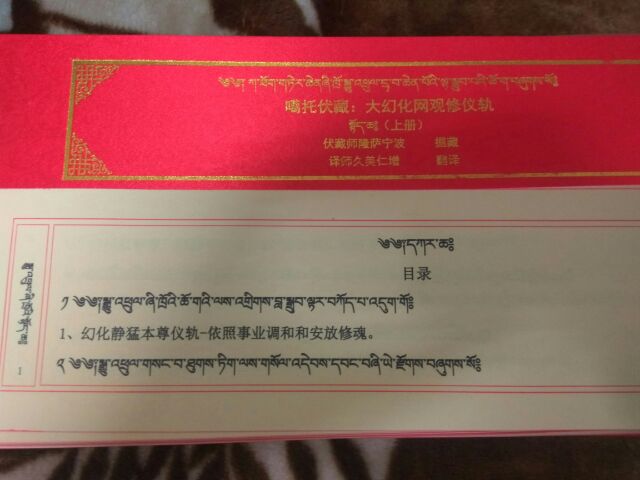 ༄༅། ཀ་ཐོག་གཏེར་ཆེན་ཞི་ཁྲོ་སྒྱུ་འཕྲུལ་དྲྭ་བ་ཆེན་པོའི་སྒྲུབ་པའི་ཆོ་ག་བཞུགས་སོ༔
噶托伏藏：大幻化网观修仪轨
སྟོད་ཆ༔（上册）
伏藏师隆萨宁波 掘藏
译师久美仁增 翻译
༄༅།།དཀར་ཆ༔
目录
༡ ༄༅།སྒྱུ་འཕྲུལ་ཞི་ཁྲོའི་ཆོ་གའི་ལས་འགྲིགས་བླ་སྒྲུབ་ལྟར་བཀོད་པ་འདུག་གོ༔
1、幻化静猛本尊仪轨-依照事业调和和安放修魂。
༢ ༄༅།སྒྱུ་འཕྲུལ་གསང་བ་ཐུགས་ཏིག་ལས་གསོལ་འདེབས་དབང་བཞི་ཡེ་རྫོགས་བཞུགས་སོ༔
1